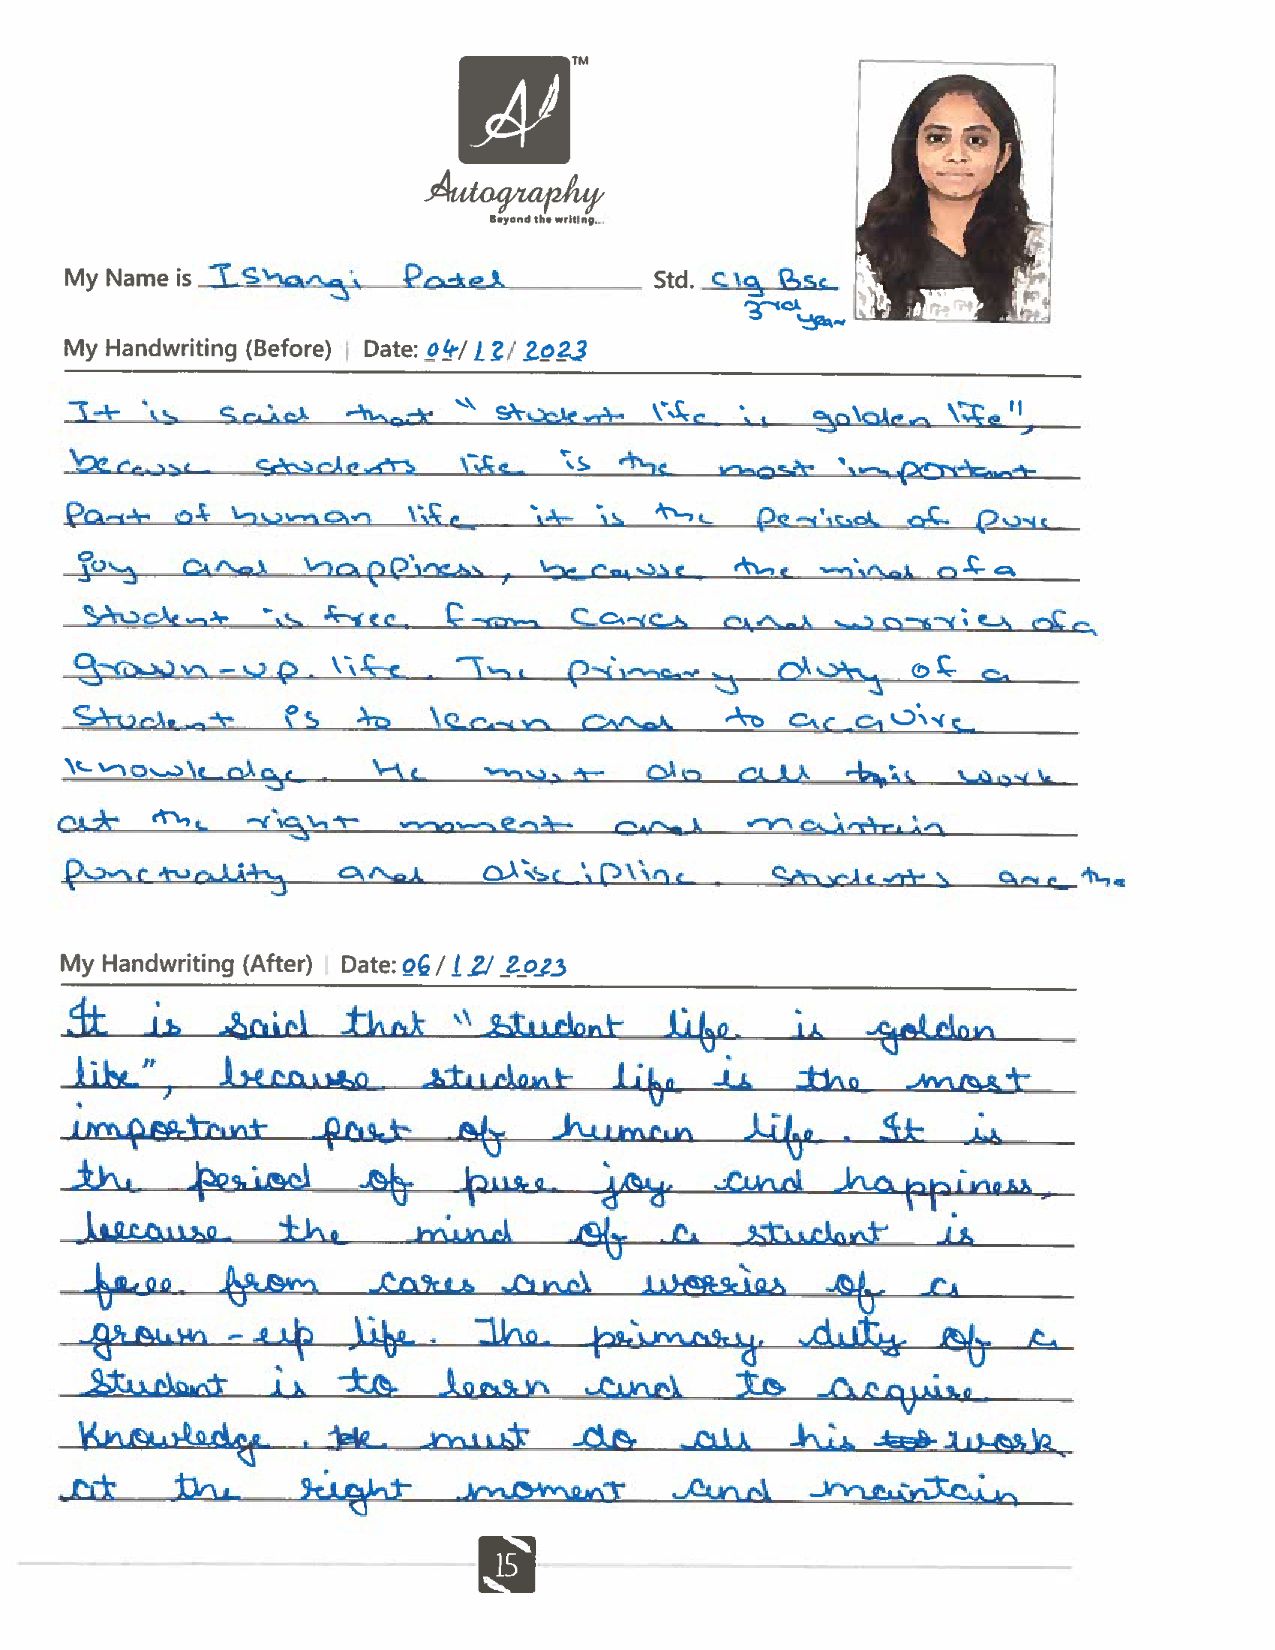 TM
Autography
Beyond the writing...
My Name is Ishangi Patel Std. Clg Bsc
3rd year
My Handwriting (Before) | Date: 04/12/2023
It is said that "student life is golden life",
because students life is the most important
Part of human life it is the period of pure
joy and happiness, because the mind of a
Student is free from Cares and worries of a
grown-up life. The primary duty of a
Student is to learn and to acquire
knowledge. He must do all this work
at the right moment and maintain
Punctuality and discipline. Students are the
My Handwriting (After) | Date: 06/12/2023
It is said that "student life is golden
life", because student life is the most
important part of human life. It is
the period of pure joy and happiness,
because the mind of a student is
free from cares and worries of a
grown-up life. The primary duty of a
Student is to learn and to acquire
Knowledge. He must do all his work
at the right moment and maintain
15